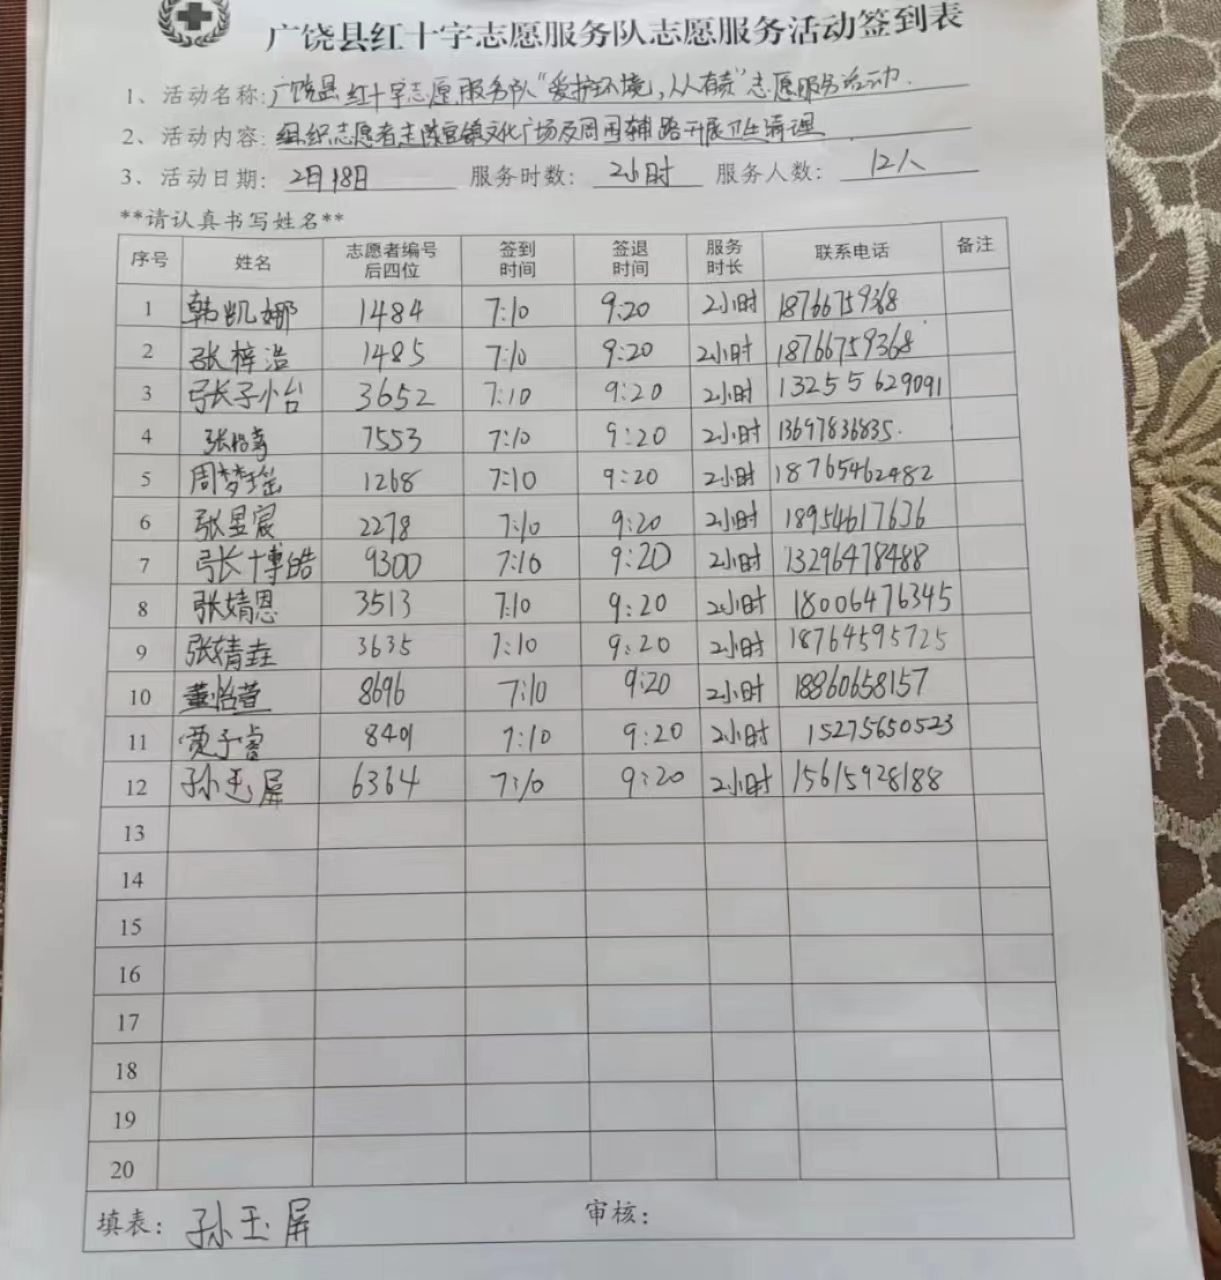 广饶县红十字志愿服务队志愿服务活动签到表
1、活动名称:广饶县红十字志愿服务队"爱护环境,人人有责"志愿服务活动.
2、活动内容:组织志愿者走陈官镇文化广场及周围辅路开展卫生清理.
3、活动日期:2月18日 服务时数:2小时 服务人数:12人
**请认真书写姓名**
序号 姓名 志愿者编号后四位 签到时间 签退时间 服务时长 联系电话 备注
1 韩凯娜 1484 7:10 9:20 2小时 18766759368
2 张梓浩 1485 7:10 9:20 2小时 18766759368
3 张子怡 3652 7:10 9:20 2小时 13255629091
4 张 7553 7:10 9:20 2小时 13697836835.
5 周梦瑶 1268 7:10 9:20 2小时 18765462482
6 张昱宸 2278 7:10 9:20 2小时 18954617636
7 张博皓 9300 7:10 9:20 2小时 13296478488
8 张婧恩 3513 7:10 9:20 2小时 18006476345
9 张婧垚 3635 7:10 9:20 2小时 18764595725
10 董怡萱 8696 7:10 9:20 2小时 18860658157
11 贾子睿 8401 7:10 9:20 2小时 15275650523
12 孙玉屏 6364 7:10 9:20 2小时 15615928188
13
14
15
16
17
18
19
20
填表:孙玉屏 审核: